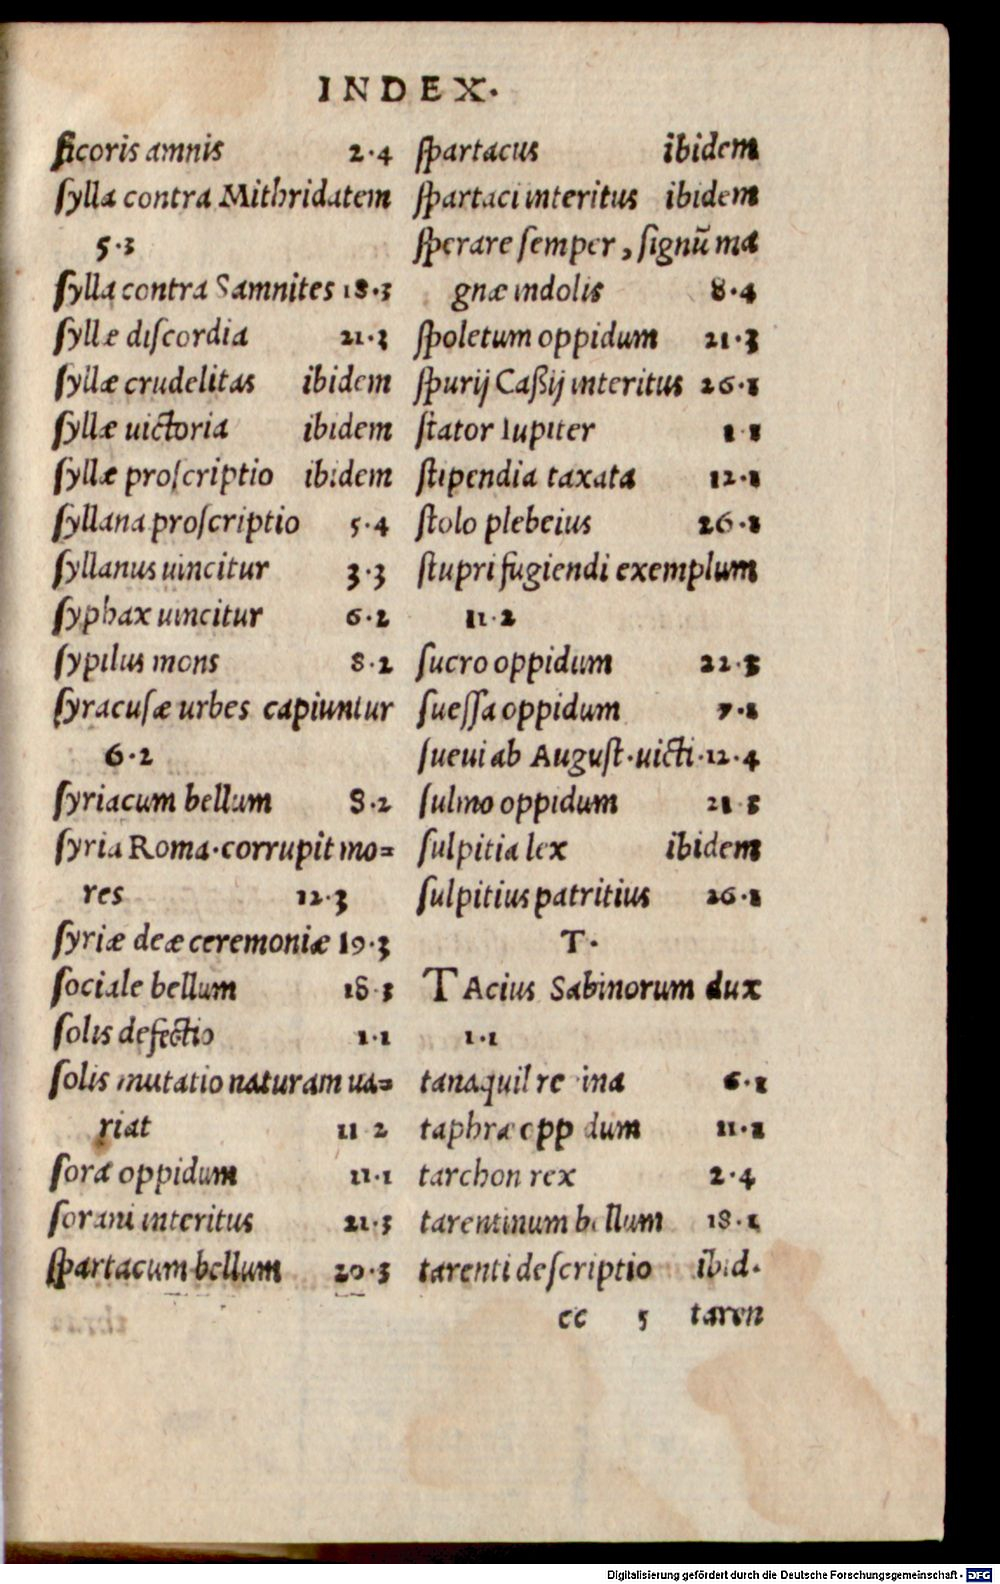 INDEX.
ſicoris amnis 2.4
ſylla contra Mithridatem
5.3
ſylla contra Samnites 18.3
ſyllæ diſcordia 21.3
ſyllæ crudelitas ibidem
ſyllæ uictoria ibidem
ſyllæ proſcriptio ibidem
ſyllana proſcriptio 5.4
ſyllanus uincitur 3.3
ſyphax uincitur 6.2
ſypilus mons 8.2
ſyracuſæ urbes capiuntur
6.2
ſyriacum bellum 8.2
ſyria Roma.corrupit mo=
res 12.3
ſyriæ deæ ceremoniæ 19.3
ſociale bellum 18.3
ſolis defectio 1.1
ſolis mutatio naturam ua=
riat 11 2
ſora oppidum 11.1
ſorani interitus 21.3
ſpartacum bellum 20.3
ſpartacus ibidem
ſpartaci interitus ibidem
ſperare ſemper, ſignũ ma
gnæ indolis 8.4
ſpoletum oppidum 21.3
ſpurij Caßij interitus 26.1
ſtator Iupiter 1.1
ſtipendia taxata 12.1
ſtolo plebeius 26.1
ſtupri fugiendi exemplum
11.2
ſucro oppidum 22.3
ſueſſa oppidum 7.1
ſueui ab Auguſt.uicti.12.4
ſulmo oppidum 21 3
ſulpitia lex ibidem
ſulpitius patritius 26.1
T.
TAcius Sabinorum dux
1.1
tanaquil re ina 6.1
taphræ opp dum 11.1
tarchon rex 2.4
tarentinum bellum 18.1
tarenti deſcriptio ibid.
cc 5 taren
Digitalisierung gefördert durch die Deutsche Forschungsgemeinschaft - DFG